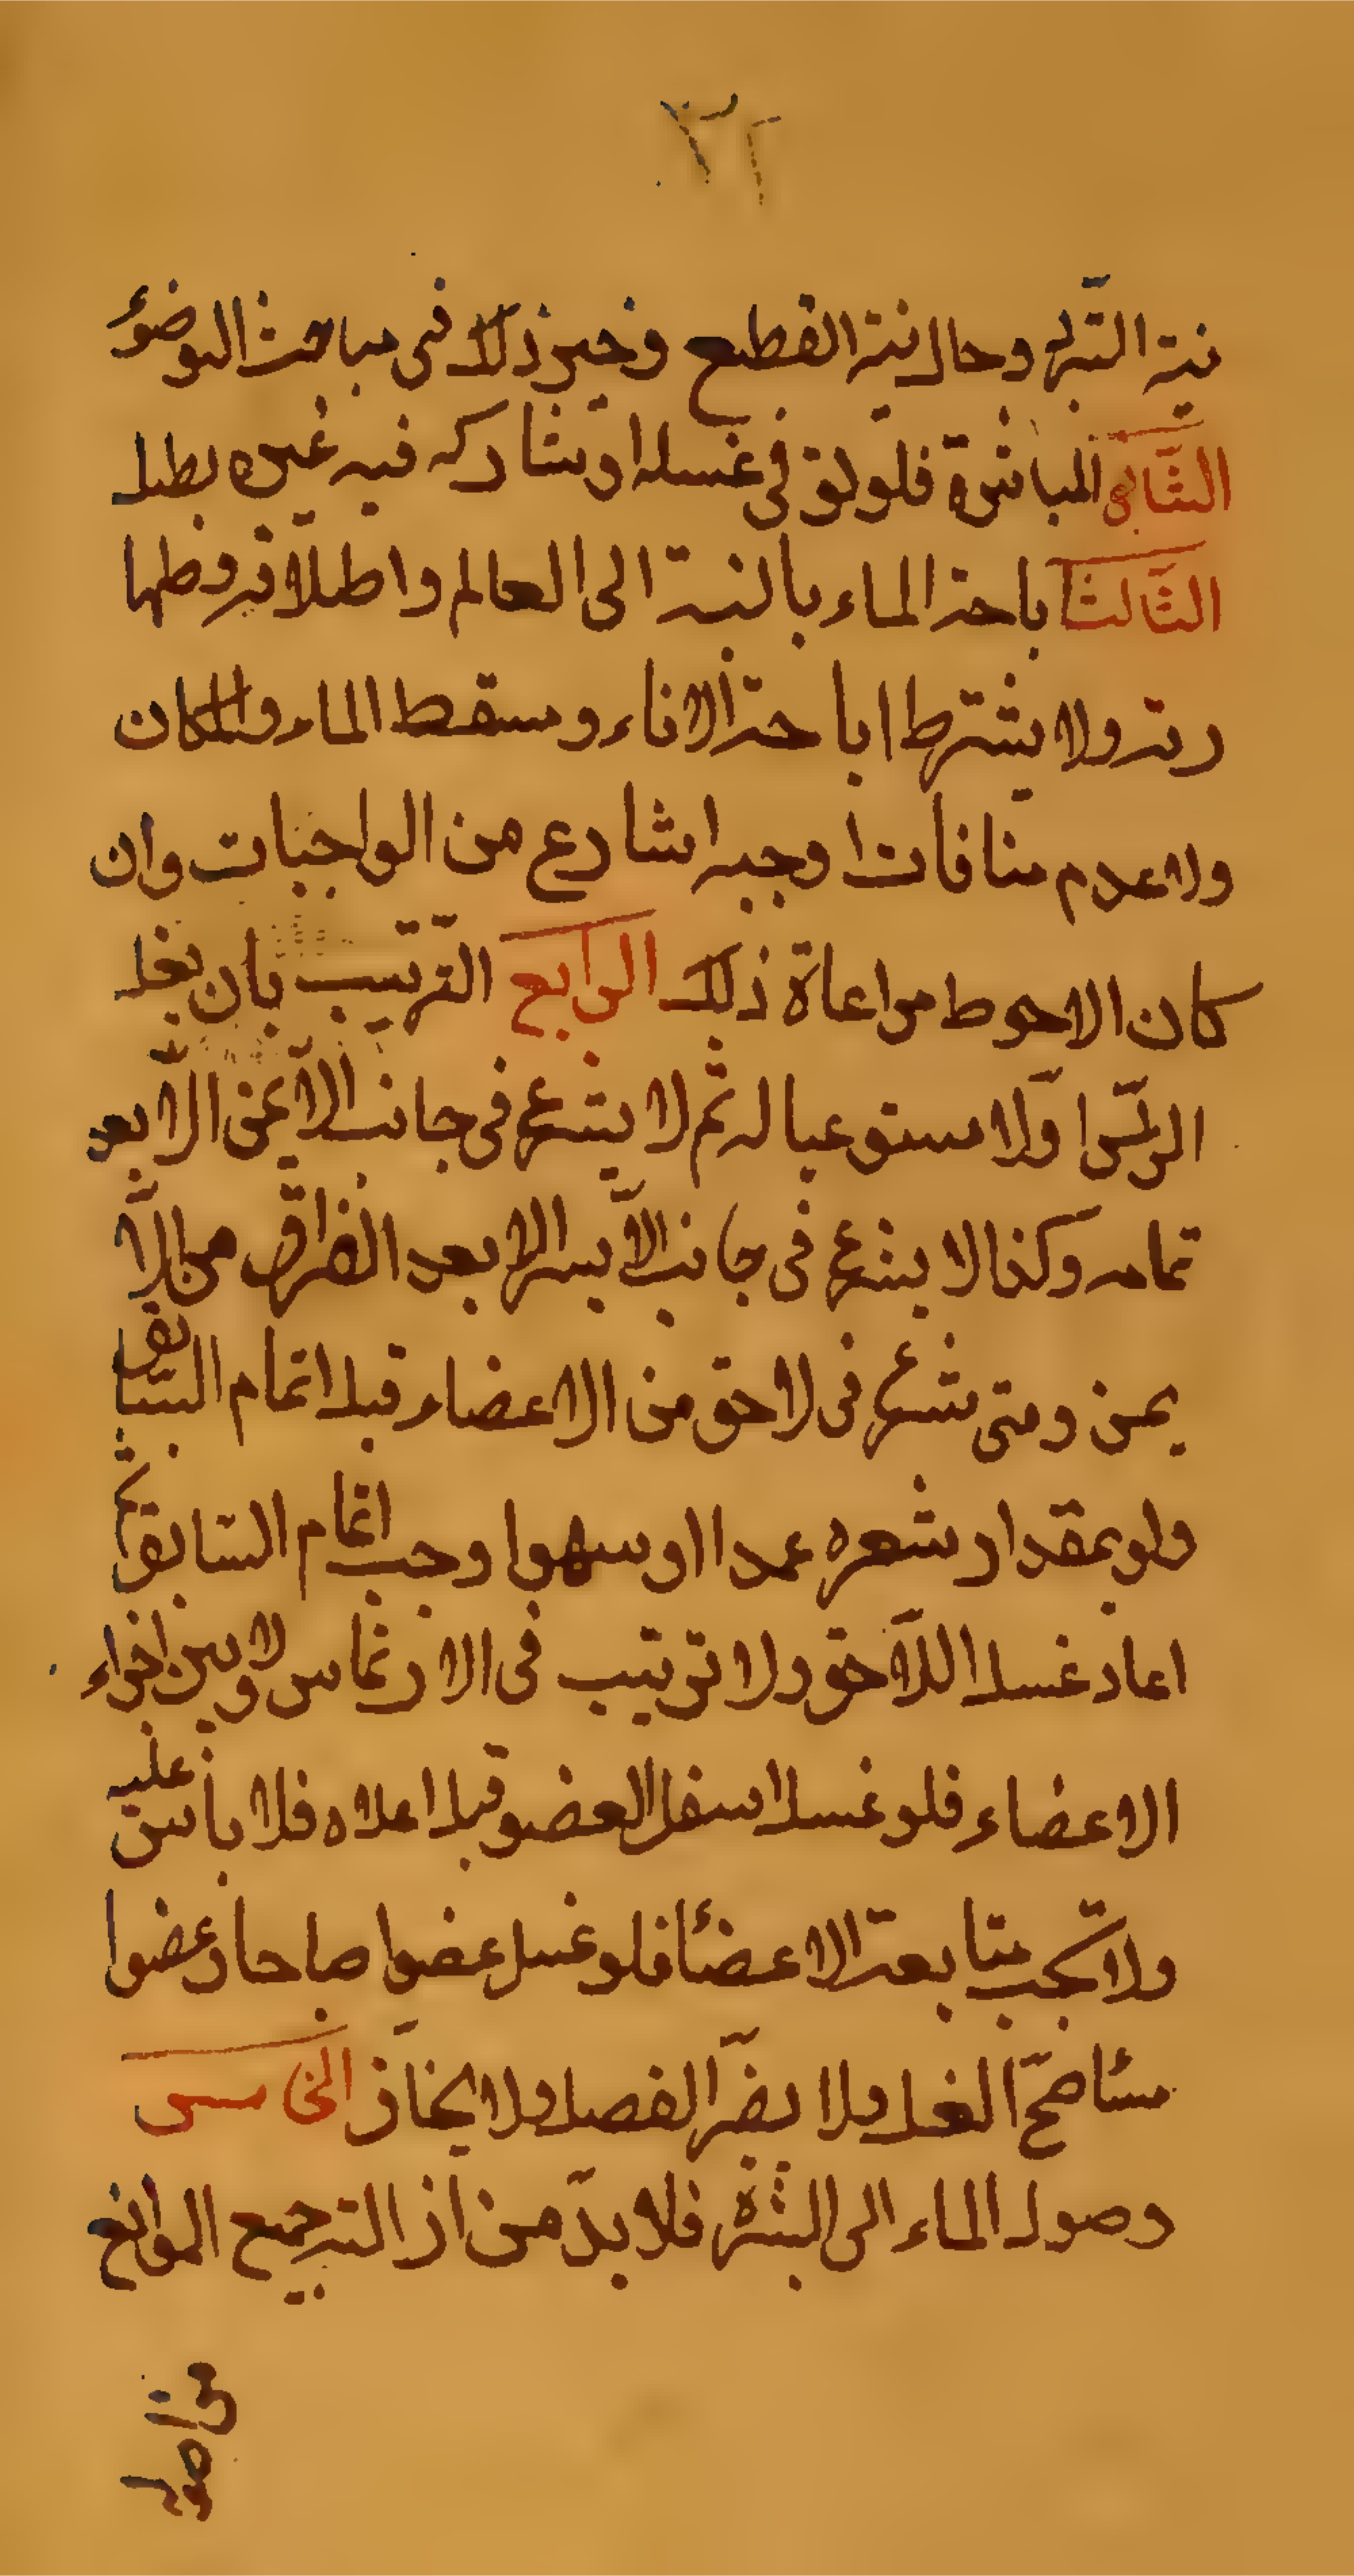 ٢٦
نية التبرد وحال نية القطيع وغير ذلك فى مباحث الوضوء
الثانى المباشرة فلو لوق فى غسله او يشاركه فيه غيره بطل
الثالث اباحة الماء بالنسبة الى العالم واطلاقه وطها
رته ولا يشترط اباحة الاناء ومسقط الماء والمكان
ولا عدم منافات اوجبه اشارع من الواجبات وان
كان الاحوط مراعاة ذلك الرابع الترتيب بان يغسل
الرئس اولا مستوعبا له ثم لا يشرع فى جانب الأيمن الا بعد
تمامه وكذا لا يشرع فى جانب الأيسر الا بعد الفراق من الا
يمن ومتى شرع فى لاحق من الاعضاء قبل اتمام السابق
ولو بمقدار شعره عمدا او سهوا وجب اتمام السابق ثم
اعاد غسل اللاحق ولا ترتيب فى الارتماس ولا بين اجزاء
الاعضاء فلو غسل اسفل العضو قبل اعلاه فلا بأس عليه
ولا تجب متابعة الاعضا فلو غسل عضوا صباحا وعضوا
مسا صح الغسل ولا يضر الفصل ولا الجفاف الخامس
وصول الماء الى البشرة فلا بد من ازالته جميع الموانع